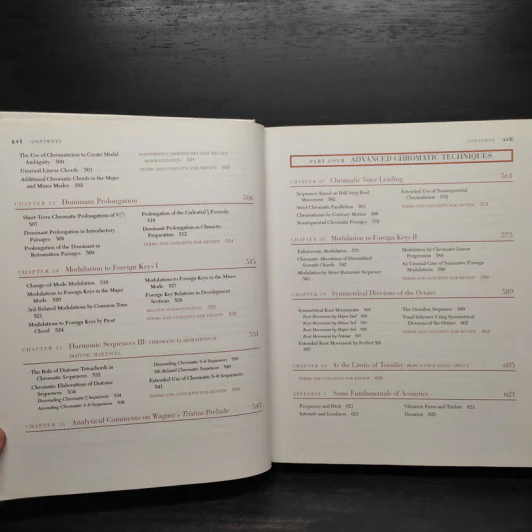 xvi CONTENTS
The Use of Chromaticism to Create Modal
Ambiguity 500
Unusual Linear Chords 501
Additional Chromatic Chords in the Major
and Minor Modes 502
TERMS AND CONCEPTS FOR REVIEW
CHAPTER Dominant Prolongation 506
Short-Term Chromatic Prolongations of V
507
Dominant Prolongation in Introductory
Passages 509
Prolongation of the Dominant in
Retransition Passages 509
Prolongation of the Cadential Formula
510
Dominant Prolongation as Climactic
Preparation 512
TERMS AND CONCEPTS FOR REVIEW 514
CHAPTER Modulation to Foreign Keys I 515
Change-of-Mode Modulation 516
Modulations to Foreign Keys in the Major
Mode 520
3rd-Related Modulations by Common Tone
521
Modulations to Foreign Keys by Pivot
Chord 524
Modulations to Foreign Keys in the Minor
Mode 527
Foreign Key Relations in Development
Sections 528
MELODY HARMONIZATION
TERMS AND CONCEPTS FOR REVIEW 530
CHAPTER Harmonic Sequences III: CHROMATIC ELABORATIONS OF
DIATONIC SEQUENCES 531
The Role of Diatonic Tetrachords in
Chromatic Sequences 532
Chromatic Elaborations of Diatonic
Sequences 534
Descending Chromatic Sequences 534
Ascending Chromatic 5–6 Sequences 536
Descending Chromatic 5–6 Sequences 539
5th-Related Chromatic Sequences 540
Extended Use of Chromatic 5–6 Sequences
541
TERMS AND CONCEPTS FOR REVIEW 544
CHAPTER Analytical Comments on Wagner's Tristan Prelude 545
CONTENTS xvii
PART FOUR ADVANCED CHROMATIC TECHNIQUES
CHAPTER Chromatic Voice Leading 561
Sequences Based on Half-Step Root
Movement 562
Strict Chromatic Parallelism 565
Chromaticism by Contrary Motion
Nonsequential Chromatic Passages
Extended Use of Nonsequential
Chromaticism 572
TERMS AND CONCEPTS FOR REVIEW 574
CHAPTER Modulation to Foreign Keys II 575
Enharmonic Modulation 575
Chromatic Alteration of Diminished
Seventh Chords 582
Modulation by Motor Harmonic Sequence
Modulation by Chromatic Linear
Progression 584
An Unusual Case of Successive Foreign
Modulations 586
TERMS AND CONCEPTS FOR REVIEW
CHAPTER Symmetrical Divisions of the Octave 589
Symmetrical Root Movements
Root Movement by Major 3rd
Root Movement by Minor 3rd
Root Movement by Major 2nd
Root Movement by Tritone
Extended Root Movement by Perfect 5th
597
The Omnibus Sequence
Tonal Schemes Using Symmetrical
Divisions of the Octave 602
TERMS AND CONCEPTS FOR REVIEW 604
CHAPTER At the Limits of Tonality 605
TERMS AND CONCEPTS FOR REVIEW
APPENDIX Some Fundamentals of Acoustics 621
Frequency and Pitch 621
Intensity and Loudness 623
Vibration Forms and Timbre 623
Duration 625